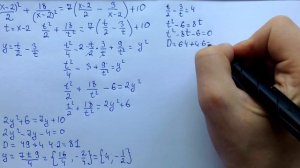 (x-2)²/2 + 18/(x-2)² = 7(x-2/2 - 3/x-2) + 10
t = x-2 t²/2 + 18/t² = 7(t/2 - 3/t) + 10
y = t/2 - 3/t t²/4 - 2·t/2·3/t + 9/t² = y²
t²/4 - 3 + 9/t² = y²
t²/2 + 18/t² - 6 = 2y²
t²/2 + 18/t² = 2y² + 6
2y² + 6 = 7y + 10
2y² - 7y - 4 = 0
D = 49 + 4·4·2 = 81
y = 7±9/4 = {16/4, -2/4} = {4, -1/2}
t/2 - 3/t = 4
t² - 6 = 8t
t² - 8t - 6 = 0
D = 64 + 4·6 =